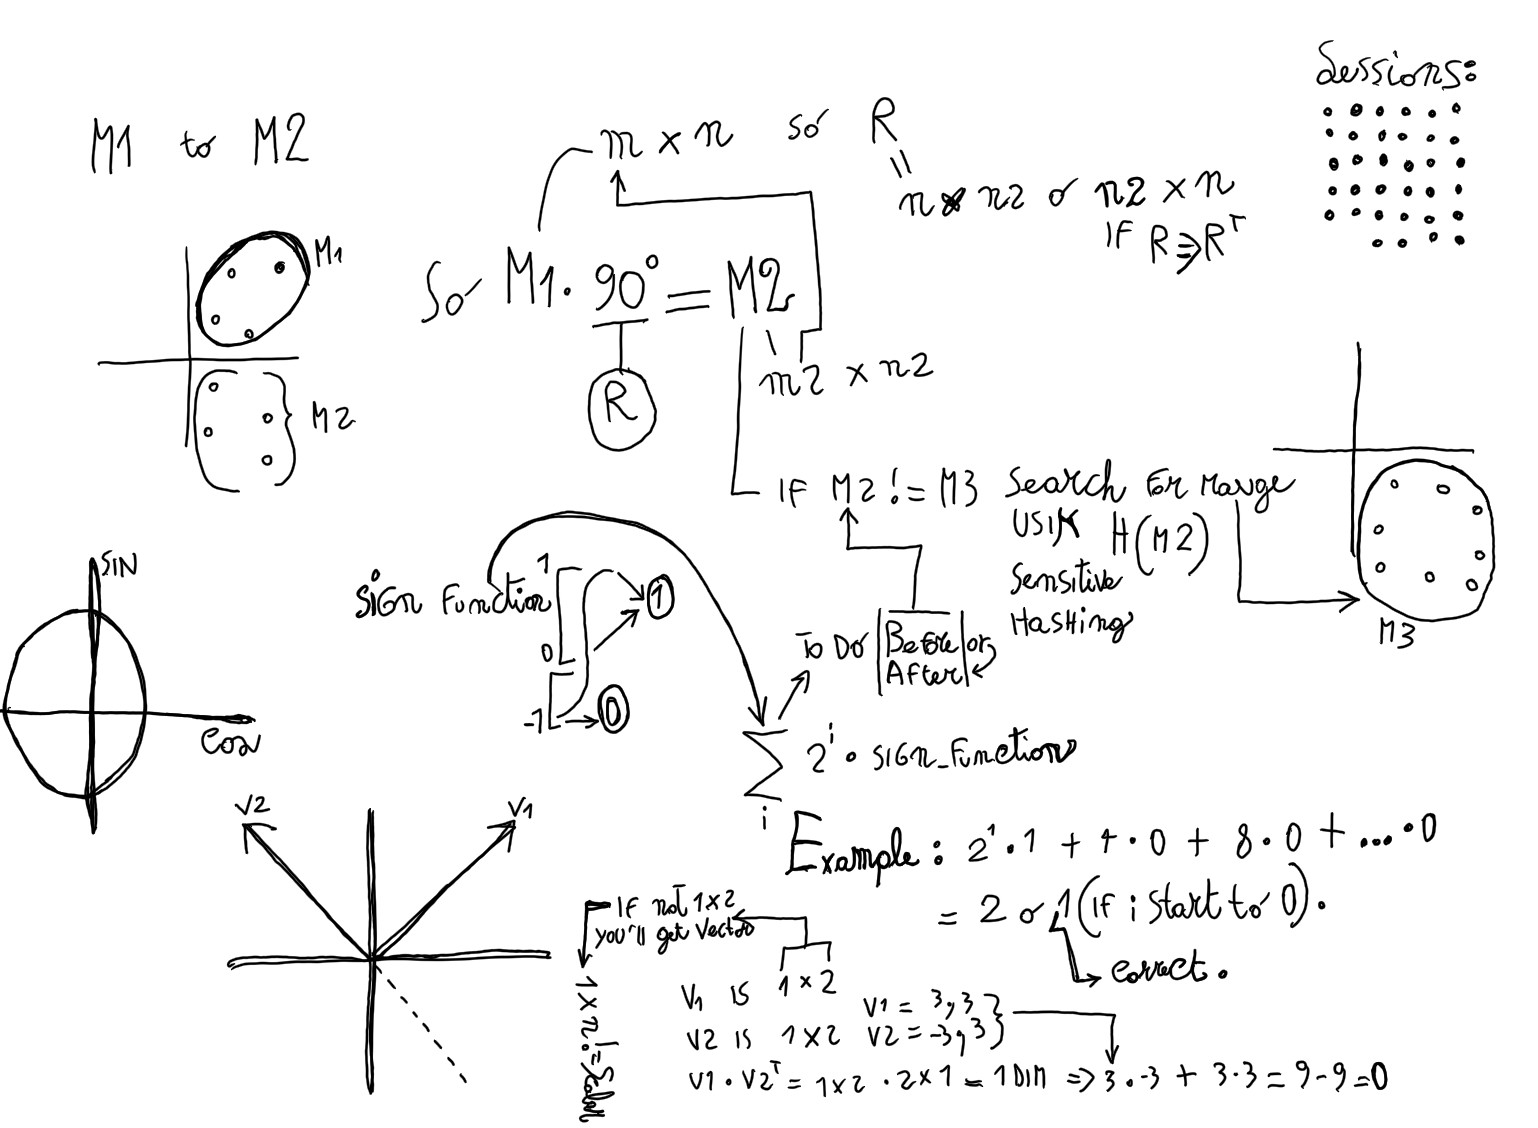 Sessions:
M1 to M2
m x n so R
=
n x n2 or n2 x n
IF R => R^T
M1
M2
So M1 . 90° = M2
R
m2 x n2
IF M2 != M3 Search For
H(M2)
Sensitive
Hashing
M3
SIN
Cos
SiGn Function
1
0
-1
1
0
To Do Before or
After
∑ 2^i . SiGn_Function
i
Example: 2^1 . 1 + 4 . 0 + 8 . 0 + .... . 0
= 2 or 1 (IF i start to 0).
correct.
V2
V1
IF not 1x2
you'll get Vector
1 x n != Scalar
V1 is 1 x 2
V1 = 3,3
V2 is 1x2 V2 = -3,3
V1 . V2^T = 1x2 . 2x1 = 1 DIM => 3 . -3 + 3.3 = 9 - 9 = 0